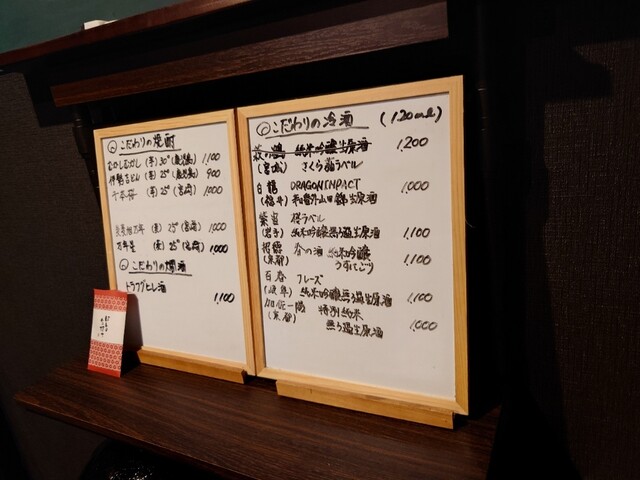 ○こだわりの焼酎
むかしむかし (芋) 30° (鹿児島) 1,100
伊勢吉どん (芋) 25° (鹿児島) 900
千本桜 (芋) 25° (宮崎) 1,000
万年 (麦) 25° (宮崎) 1,000
万年星 (麦) 25° (宮崎) 1,000
○こだわりの燗酒
トラフグヒレ酒
1,100
○こだわりの冷酒 (120ml)
萩の鶴 純米吟醸生原酒 1,200
(宮城) さくら猫ラベル
白龍 DRAGON IMPACT 1,000
(福井) 番外山田錦生原酒
紫宙 桜ラベル
(岩手) 純米吟醸無ろ過生原酒 1,100
招德 春の酒 純米吟醸 1,100
(京都) うすにごり
百春 フレーズ
(岐阜) 純米吟醸無ろ過生原酒 1,100
加佐一陽 特別純米
(京都) 無ろ過生原酒 1,000